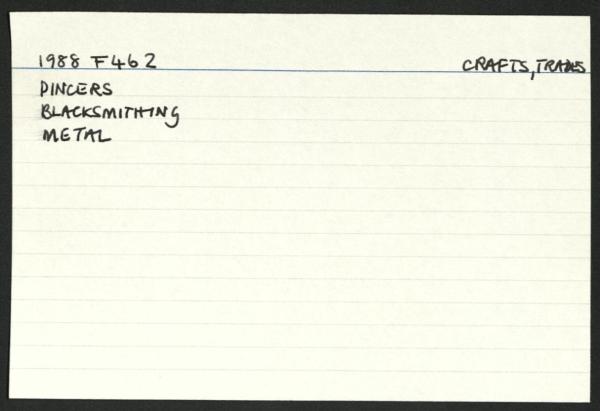 1988 F462 CRAFTS, TRADES
PINCERS
BLACKSMITHING
METAL